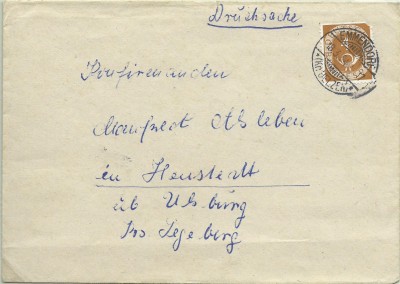 Drucksache
EMMENDORF
Konfirmanden
Manfred Ahsleben
in Heustedt
üb Ulzburg
Krs Segeberg